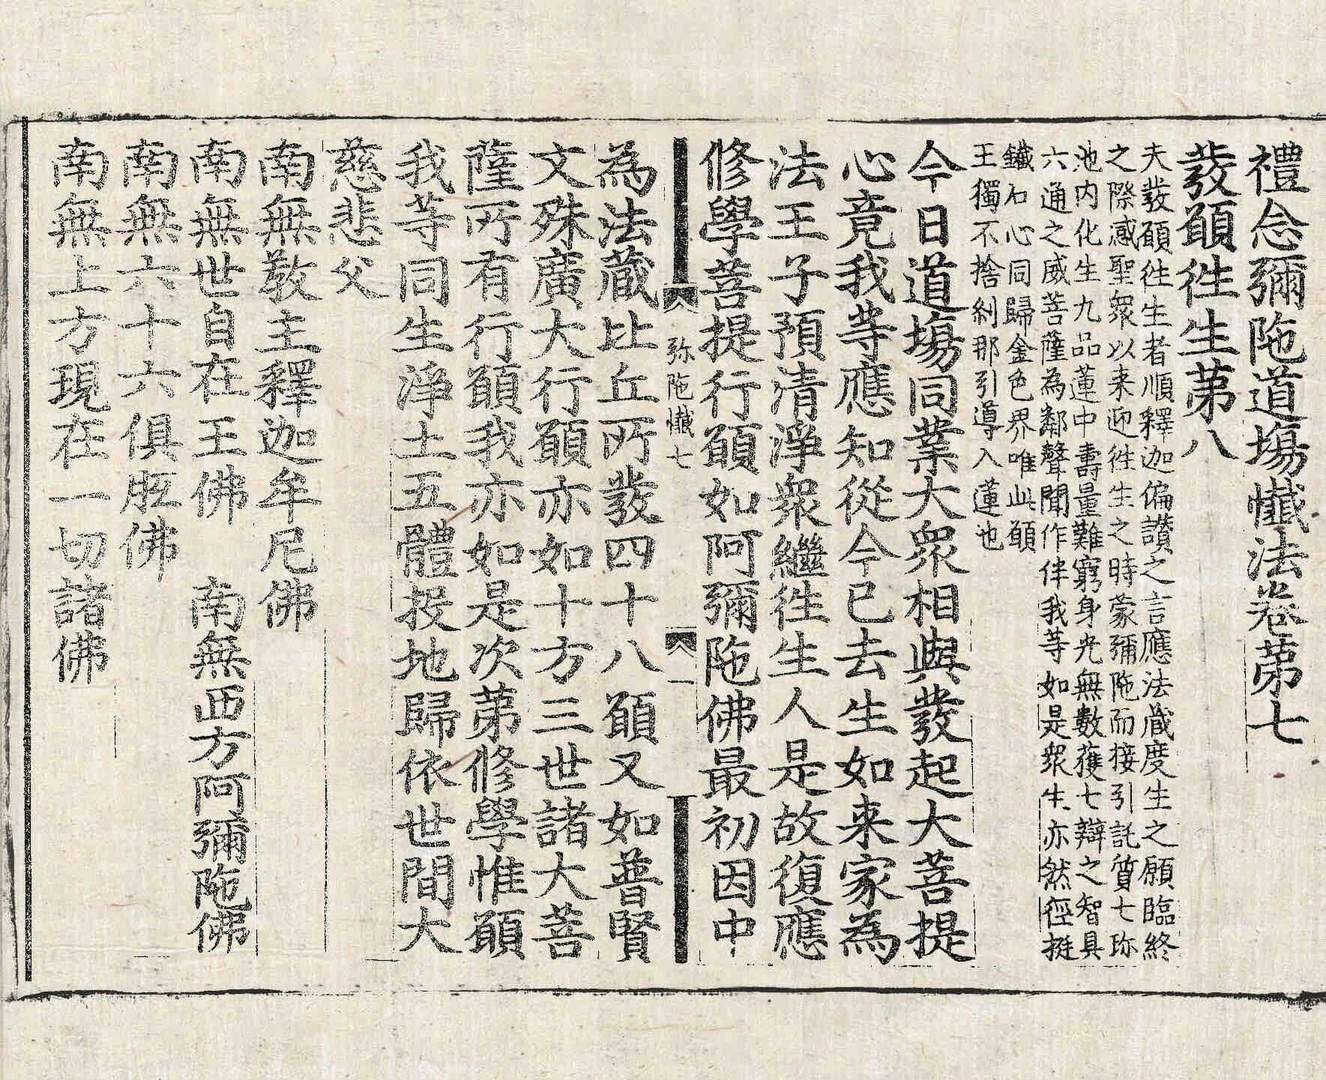 禮念彌陁道塲懺法卷苐七
發願徃生苐八
夫發願徃生者順釋迦偏讃之言應法藏度生之願臨終
之際感聖衆以来迎徃生之時蒙彌陁而接引託質七珎
池内化生九品蓮中壽量難窮身光無數獲七辯之智具
六通之威菩薩為鄰聲聞作伴我等如是衆生亦然徑挺
鐵石心同歸金色界唯此願
王獨不捨刹那引導入蓮也
今日道塲同業大衆相與發起大菩提
心竟我等應知從今已去生如来家為
法王子預清淨衆繼徃生人是故復應
修學菩提行願如阿彌陁佛最初因中
弥陁懺七
一
為法藏比丘所發四十八願又如普賢
文殊廣大行願亦如十方三世諸大菩
薩所有行願我亦如是次苐修學惟願
我等同生淨土五體投地歸依世間大
慈悲父
南無教主釋迦牟尼佛
南無世自在王佛　南無西方阿彌陁佛
南無六十六俱胝佛
南無上方現在一切諸佛